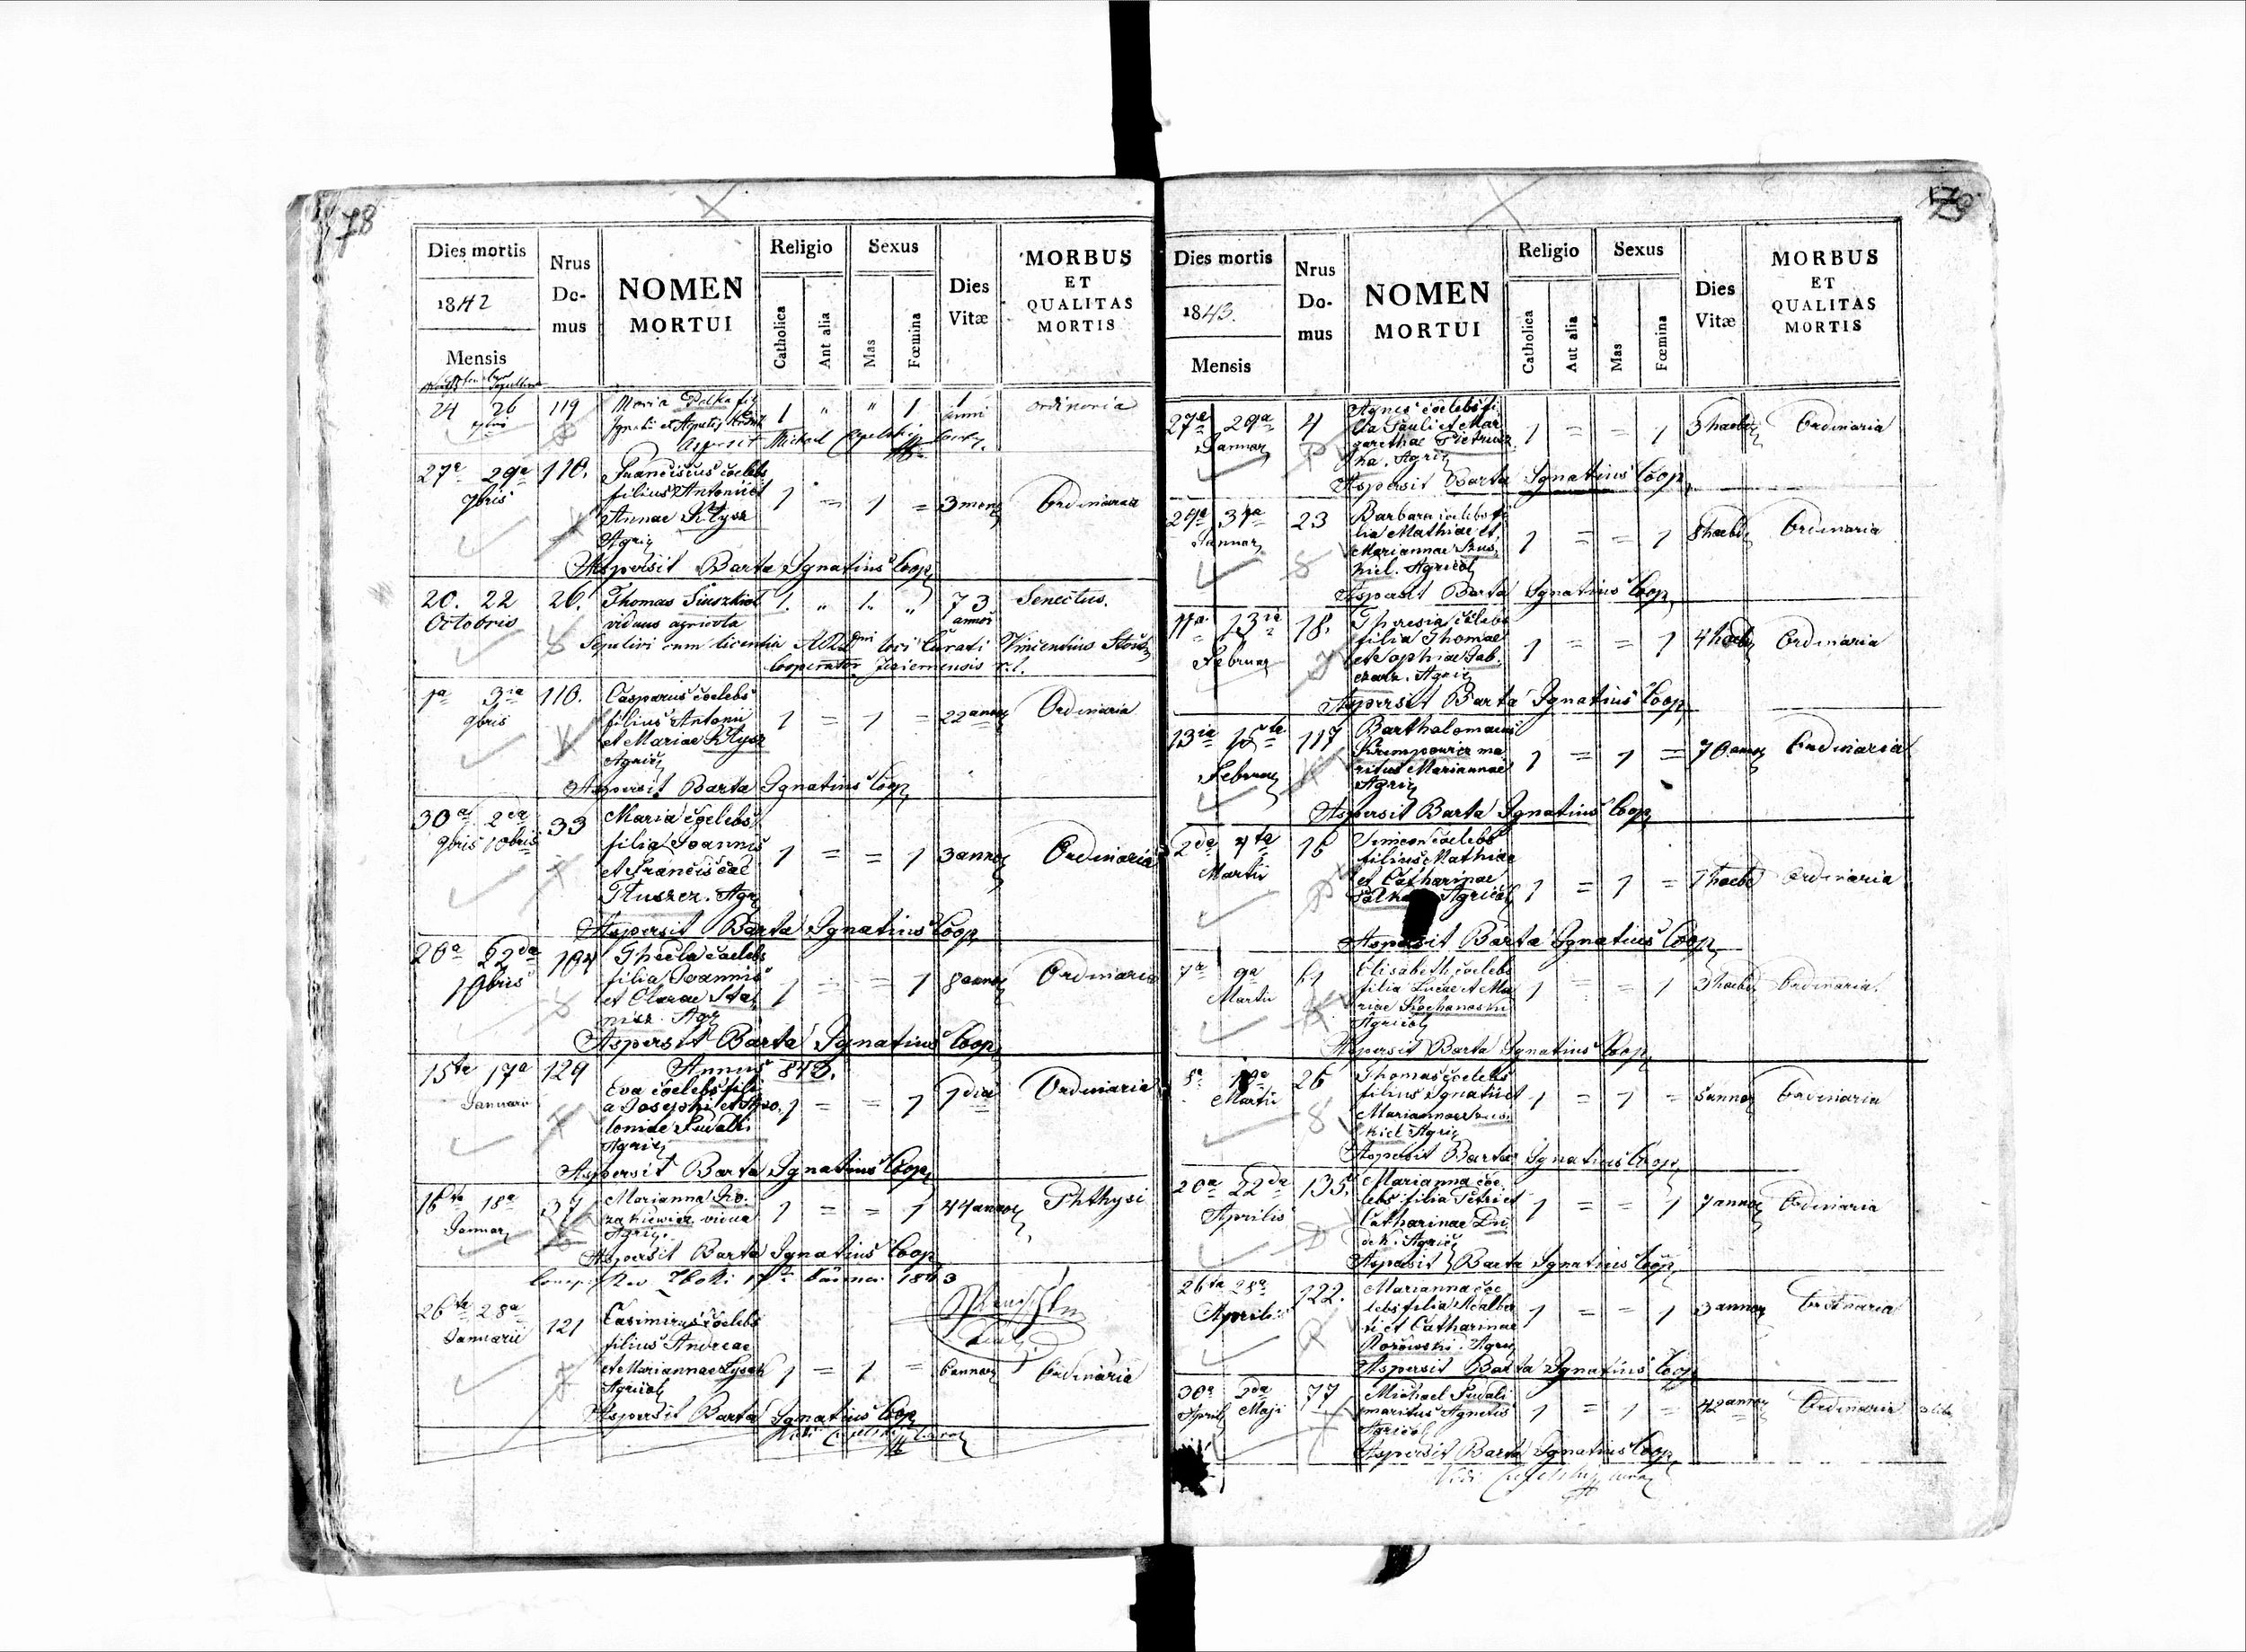 78
Dies mortis
1842
Mensis
Nrus
Do-
mus
NOMEN
MORTUI
Religio
Catholica
Aut alia
Sexus
Mas
Fœmina
Dies
Vitæ
MORBUS
ET
QUALITAS
MORTIS
24 26
119
Maria Polka fi
1 " " 1
ordinaria
Aspersit Michael
27a 29a
7bris
110.
Franciscus coelebs
filius Antonii et
Annae Kłysz
Agric
1 = 1 =
3 mens
Ordinaria
Aspersit Barta Ignatius Coop
20. 22
Octobris
26.
Thomas Siuszkiel
viduus agricola
1. " 1. "
73.
annor
Senectus.
Sepelivi cum licentia loci Curati Vincentius
Cooperator
1a 3ia
9bris
110.
Casparus coelebs
filius Antonii
et Mariae Kłysz
Agric
1 = 1 =
22 annor
Ordinaria
Aspersit Barta Ignatius Coop
30a 2da
9bris 10bris
33
Maria coelebs
filia Joannis
et Franciscae
Tłuszcz. Agr
1 = = 1
3 annor
Ordinaria
Aspersit Barta Ignatius Coop
20a 22da
10bris
104
Thecla coelebs
filia Joannis
et Clarae Sta
nisz. Agr
1 = = 1
8 annor
Ordinaria
Aspersit Barta Ignatius Coop
Annus 843.
15ta 17a
Januarii
129
Eva coelebs fili
a Josephi et Apo
loniae Fudalli
Agric
1 = = 1
1 dia
Ordinaria
Aspersit Barta Ignatius Coop
16ta 18a
Januar
37
Marianna Ko
zakiewicz vidua
Agric.
1 = = 1
44 annor
Phthysi
Aspersit Barta Ignatius Coop
1843
26ta 28a
Januarii
121
Casimirus coelebs
filius Andreae
et Mariannae Łysak
Agricol
1 = 1 =
6 annor
Ordinaria
Aspersit Barta Ignatius Coop
79
Dies mortis
1843.
Mensis
Nrus
Do-
mus
NOMEN
MORTUI
Religio
Catholica
Aut alia
Sexus
Mas
Fœmina
Dies
Vitæ
MORBUS
ET
QUALITAS
MORTIS
27a 29a
Januar
4
Agnes coelebs fi
lia Pauli et Mar
garethae Pietrusz
ka. Agric
1 = = 1
3 hebd
Ordinaria
Aspersit Barta Ignatius Coop
29a 31a
Januar
23
Barbara coelebs fi
lia Mathiae et
Mariannae Szus
kiel. Agricol
1 = = 1
8 hebd
Ordinaria
Aspersit Barta Ignatius Coop
11a 13ia
Februar
18.
Theresia coelebs
filia Thomae
et Sophiae Jab
czarz. Agric
1 = = 1
4 hebd
Ordinaria
Aspersit Barta Ignatius Coop
13ia 15ta
Februar
117
Bartholomaeus
Krempowicz ma
ritus Mariannae
Agric
1 = 1 =
70 annor
Ordinaria
Aspersit Barta Ignatius Coop
2da 4ta
Martii
16
Simeon coelebs
filius Mathiae
et Catharinae
Agricol
1 = 1 =
1 hebd
Ordinaria
Aspersit Barta Ignatius Coop
7a 9a
Martii
61
Elisabeth coelebs
filia Lucae et Ma
riae Kochanoski
Agricol
1 = = 1
3 hebd
Ordinaria.
Aspersit Barta Ignatius Coop
8a 10a
Martii
26
Thomas coelebs
filius Ignatii et
Mariannae Szus
kiel Agric
1 = 1 =
5 annor
Ordinaria
Aspersit Barta Ignatius Coop
20a 22da
Aprilis
135.
Marianna coe
lebs filia Petri et
Catharinae Du
dek. Agric
1 = = 1
7 annor
Ordinaria
Aspersit Barta Ignatius Coop
26ta 28a
Aprilis
122.
Marianna coe
lebs filia Adalber
ti et Catharinae
Rorowski. Agric
1 = = 1
3 annor
Ordinaria
Aspersit Barta Ignatius Coop
30a 2da
April Maji
77
Michael Fudali
maritus Agnetis
Agricol
1 = 1 =
42 annor
Ordinaria
Aspersit Barta Ignatius Coop